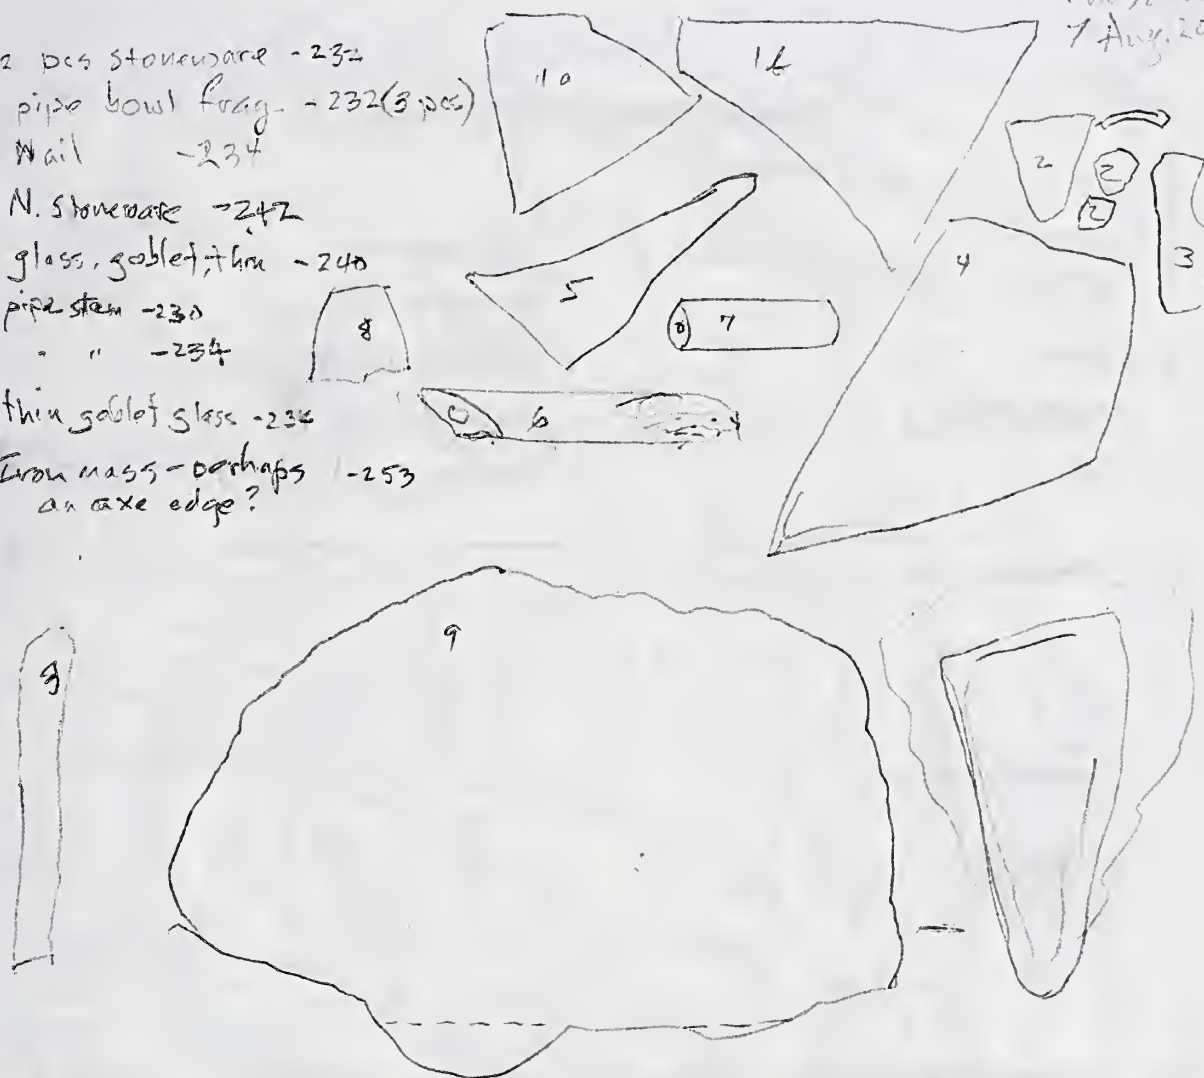 2 pcs stoneware -232
pipe bowl frag. -232 (3 pcs)
Nail -234
N. Stoneware -242
glass, goblet, thin -240
pipe stem -230
" " -234
thin goblet glass -234
Iron mass - perhaps -253
an axe edge?
7 Aug. 20
1a
1b
2
2
2
3
4
5
8
7
6
9
3